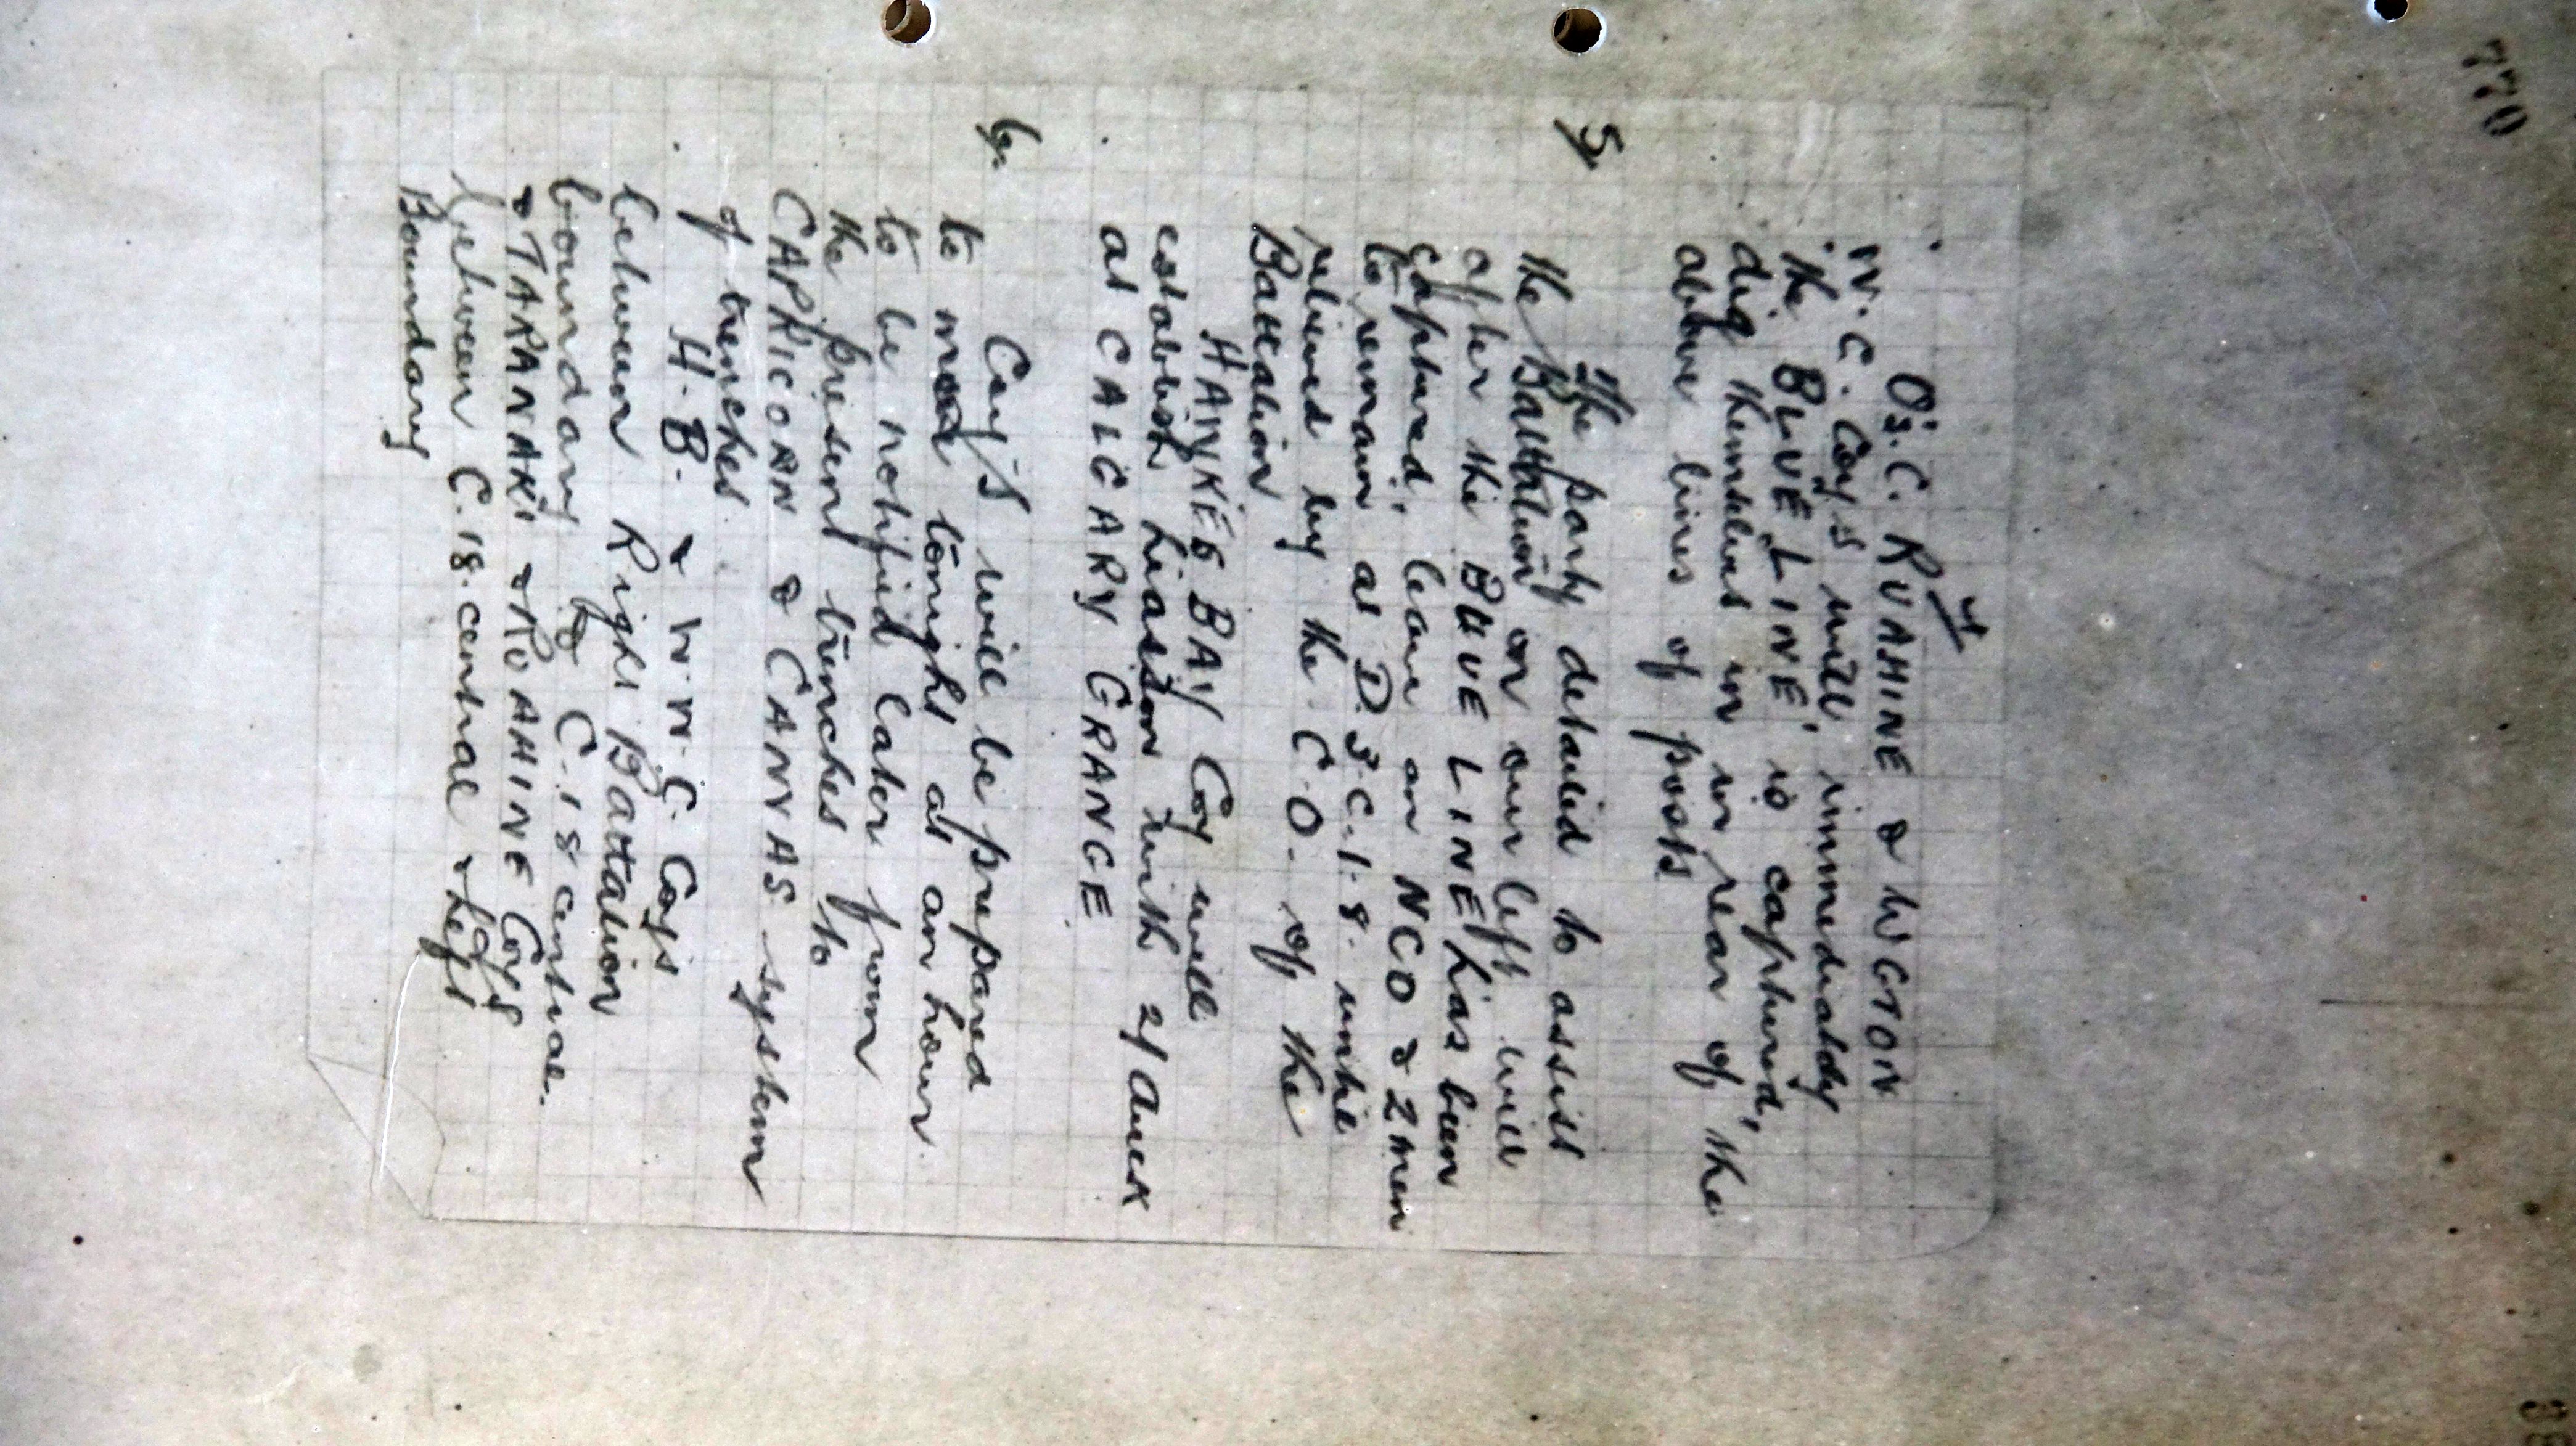 770
4
O's. C. RUAHINE & WGTON
W. C. Coy's will, immediately
the BLUE LINE' is captured,
dig themselves in in rear of the
above lines of posts
5/
The party detailed to assist
the Battalion on our left will
after the BLUE LINE has been
captured, leave an NCO & 2 men
to remain at D.3.C.1.8. until
relieved by the C.O. of the
Battalion
HAWKES BAY Coy will
establish Liaison with 2/ Auck
at CALGARY GRANGE
6.
Coy's will be prepared
to move tonight at an hour
to be notified later from
the present trenches to
CAPRICORN & CANVAS system
of trenches.
H. B. & W.W.C. Coys
between Right Battalion
boundary to C.18 central.
& TARANAKI & RUAHINE Coys
between C.18.central & Left
Boundary